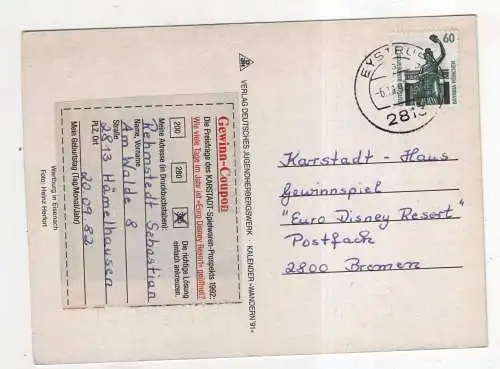 Wartburg in Eisenach
Foto: Heinz Herfort
Gewinn-Coupon
Die Preisfrage des KARSTADT-Spielwaren-Prospekts 1992:
Wie viele Tage im Jahr ist »Euro Disney Resort« geöffnet?
200
280
Die richtige Lösung
einfach ankreuzen.
Meine Adresse (in Druckbuchstaben):
Rehmstedt Sebastian
Name, Vorname
Am Walde 8
Straße
2813 Hämelhausen
PLZ, Ort
20.09.82
Mein Geburtstag (Tag/Monat/Jahr)
VERLAG DEUTSCHES JUGENDHERBERGSWERK KALENDER »WANDERN '91«
EYSTRUP
2813
60
BAVARIA MÜNCHEN
Karstadt-Haus
Gewinnspiel
"Euro Disney Resort"
Postfach
2800 Bremen